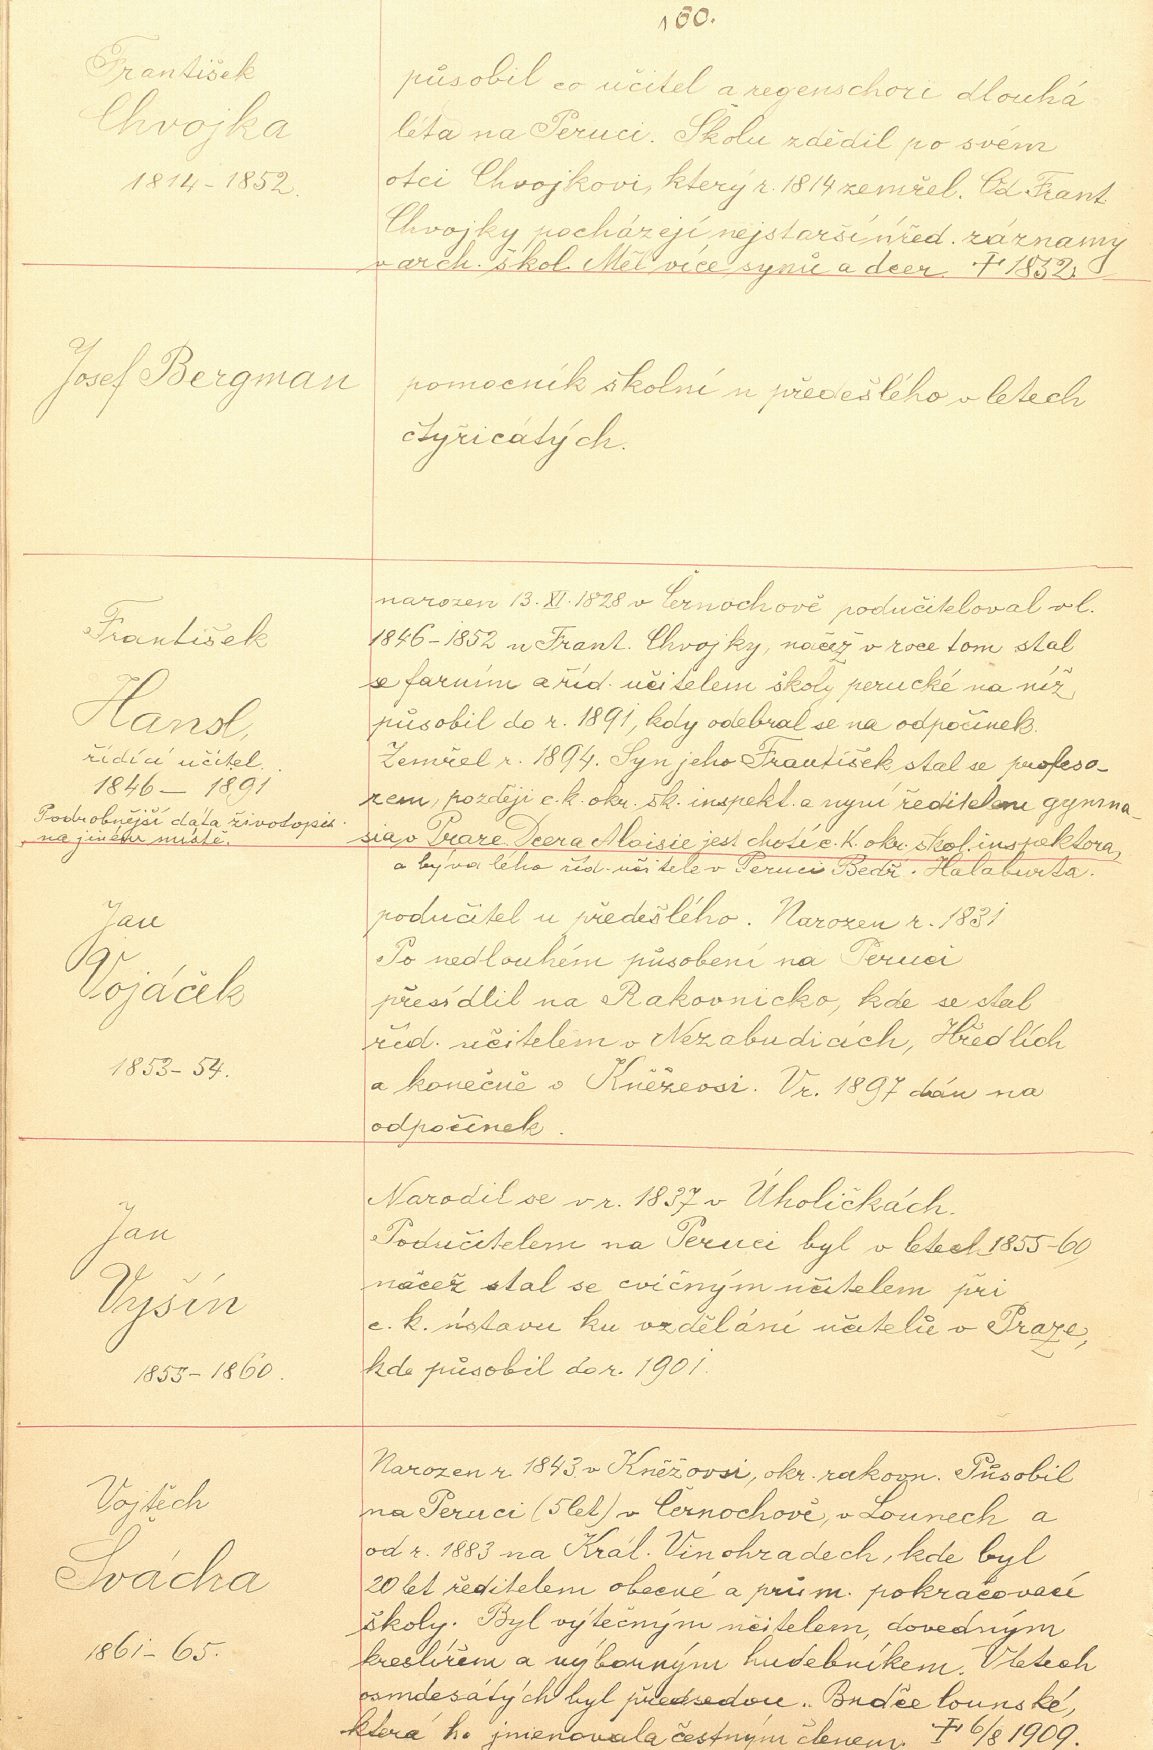 160.
František
Chvojka
1814-1852.
působil co učitel a regenschori dlouhá
léta na Peruci. Školu zdědil po svém
otci Chvojkovi, který r. 1814 zemřel. Od Frant
Chvojky pocházejí nejstarší úřed. záznamy
v arch. škol. Měl více synů a dcer. † 1852.
Josef Bergman
pomocník školní u předešlého v letech
čtyřicátých.
František
Hansl,
řídící učitel.
1846 - 1891
Podrobnější dáta životopis.
na jiném místě.
narozen 13. XI. 1828 v Černochově podučiteloval v l.
1846-1852 u Frant. Chvojky, načež v roce tom stal
se farním a říd. učitelem školy perucké na níž
působil do r. 1891, kdy odebral se na odpočinek.
Zemřel r. 1894. Syn jeho František stal se profeso-
rem, později c. k. okr. šk. inspekt. a nyní ředitelem gymna-
sia v Praze. Dcera Aloisie jest chotí c. k. okr. škol. inspektora,
a bývalého říd. učitele v Peruci Bedř. Halaburta.
Jan
Vojáček
1853-54.
podučitel u předešlého. Narozen r. 1831
Po nedlouhém působení na Peruci
přesídlil na Rakovnicko, kde se stal
říd. učitelem v Nezabudicích, Hředlích
a konečně v Kněževsi. V r. 1897 dán na
odpočinek.
Jan
Vyšín
1853-1860.
Narodil se v r. 1837 v Úholičkách.
Podučitelem na Peruci byl v letech 1855-60,
načež stal se cvičným učitelem při
c. k. ústavu ku vzdělání učitelů v Praze,
kde působil do r. 1901.
Vojtěch
Svácha
1861-65.
Narozen r. 1843 v Kněžovsi, okr. rakovn. Působil
na Peruci (5 let) v Černochově, v Lounech a
od r. 1883 na Král. Vinohradech, kde byl
20 let ředitelem obecné a prům. pokračovací
školy. Byl výtečným učitelem, dovedným
kreslířem a výborným hudebníkem. V letech
osmdesátých byl předsedou "Budče lounské,
která ho jmenovala čestným členem. † 6/8 1909.